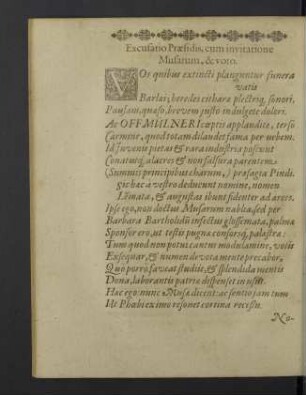 Excusatio Præsidis, cum invitatione
Musarum, & voto.
VOs quibus extincti planguntur funera
vatis
Barlæi, herodes cithara plectriq; sonori,
Pausam, quæso, brevem justo indulgete dolori.
Ac OFFMULNERI cœptis applaudite, terso
Carmine, quod totam dilau det fama per urbem.
Id Juvenis pietas & rara industria poscunt
Conatusq; alacres & non falsura parentem
(Summis principibus charum,) præsagia Pindi.
git hæc à vestro deducunt numine, nomen
Lemata, & augustas ibunt fidenter ad arces.
Ipse ego, non doctas Musarum nablia, sed per
Barbara Bartholidum infectus glossemata, palma
Sponsor ero, ut testis pugna consorsq; palæstra:
Tum quod non potui cantum modulamine, votis
Exsequar, & numen devota mente precabor,
Quo porro faveat studiis, & splendida mentis
Dona, laborantis patriæ dispenset in usum.
Hæc ego: nunc Musæ dicent: ac sentio jam tum
Ut Phœbi eximio resonet cortina recessu.
No-